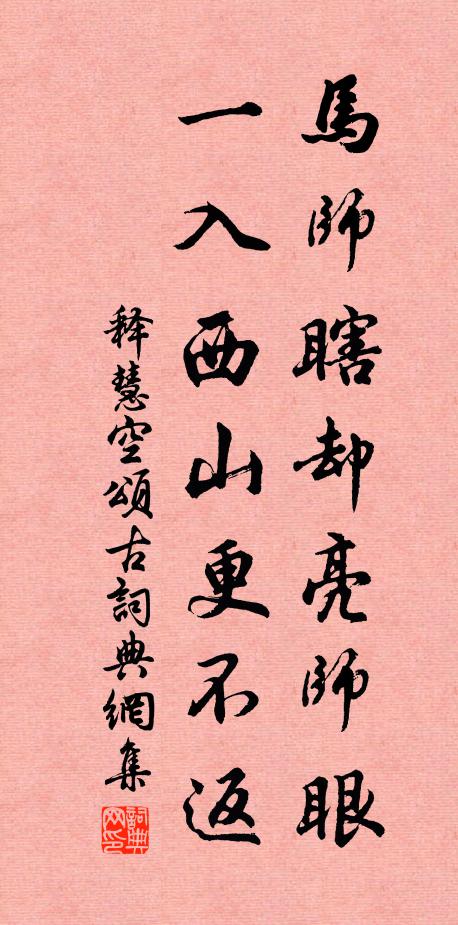 馬師瞎却亮師眼
一入西山更不返
释慧空頌古詞典網集
詞典网印